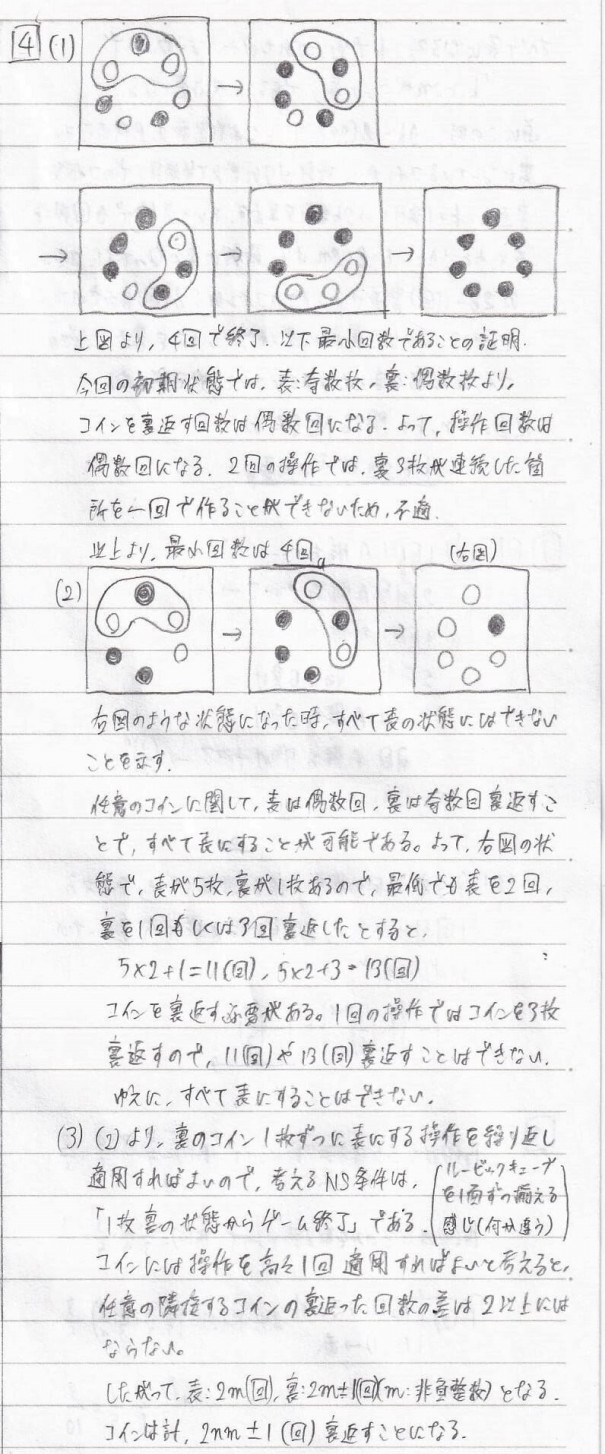 4 (1)
上図より,4回で終了. 以下最小回数であることの証明.
今回の初期状態では,表:奇数枚,裏:偶数枚より,
コインを裏返す回数は偶数回になる. よって,操作回数は
偶数回になる. 2回の操作では,裏3枚が連続した箇
所を一回で作ることができないため,不適.
以上より,最小回数は 4回。
(2)
(右図)
右図のような状態になった時,すべて表の状態にはできない
ことを示す.
任意のコインに関して,表は偶数回,裏は奇数回裏返すこ
とで,すべて表にすることが可能である。よって,右図の状
態で,表が5枚,裏が1枚あるので,最低でも表を2回,
裏を1回もしくは3回裏返したとすると,
5×2+1=11(回), 5×2+3=13(回)
コインを裏返す必要がある。1回の操作ではコインを3枚
裏返すので,11(回)や13(回)裏返すことはできない.
ゆえに,すべて表にすることはできない.
(3) (2)より,裏のコイン1枚ずつに表にする操作を繰り返し
適用すればよいので,考えるNS条件は,
「1枚裏の状態からゲーム終了」である.
(ルービックキューブ
を1面ずつ揃える
感じ(何か違う))
コインには操作を高々1回適用すればよいと考えると,
任意の隣接するコインの裏返った回数の差は2以上には
ならない。
したがって,表:2m(回),裏:2m±1(回)(m:非負整数)となる.
コインは計,2nm±1(回)裏返すことになる.